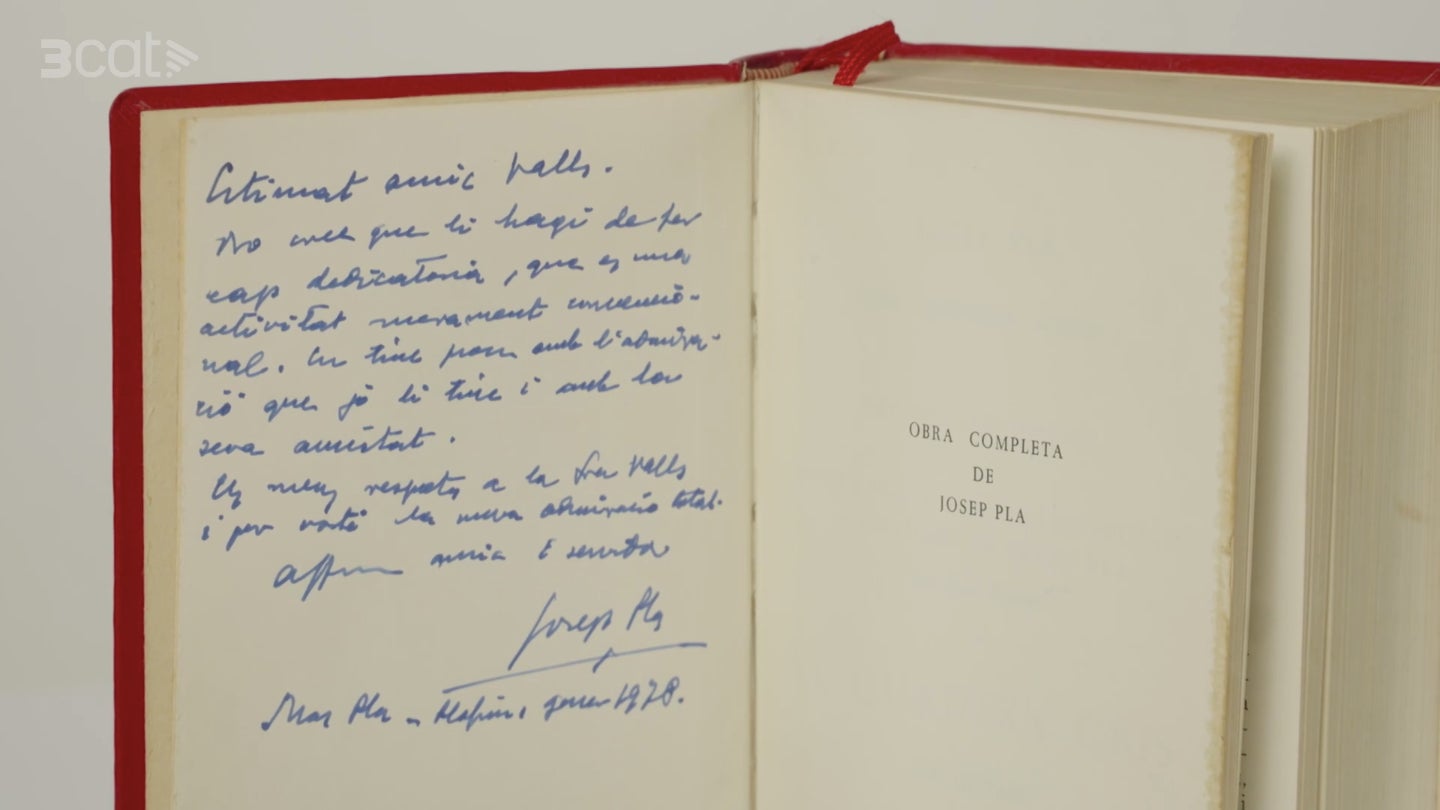 3cat
Estimat amic Valls.
No crec que li hagi de fer
cap dedicatoria, que es una
activitat merament convencio-
nal. En tinc prou amb l'admira-
ció que jo li tinc i amb la
seva amistat.
Els meus respectes a la Sra Valls
i per vostè la meva admiració total.
Affm amic i servidor
Josep Pla
Mas Pla - Llofriu, gener 1978.
OBRA COMPLETA
DE
JOSEP PLA